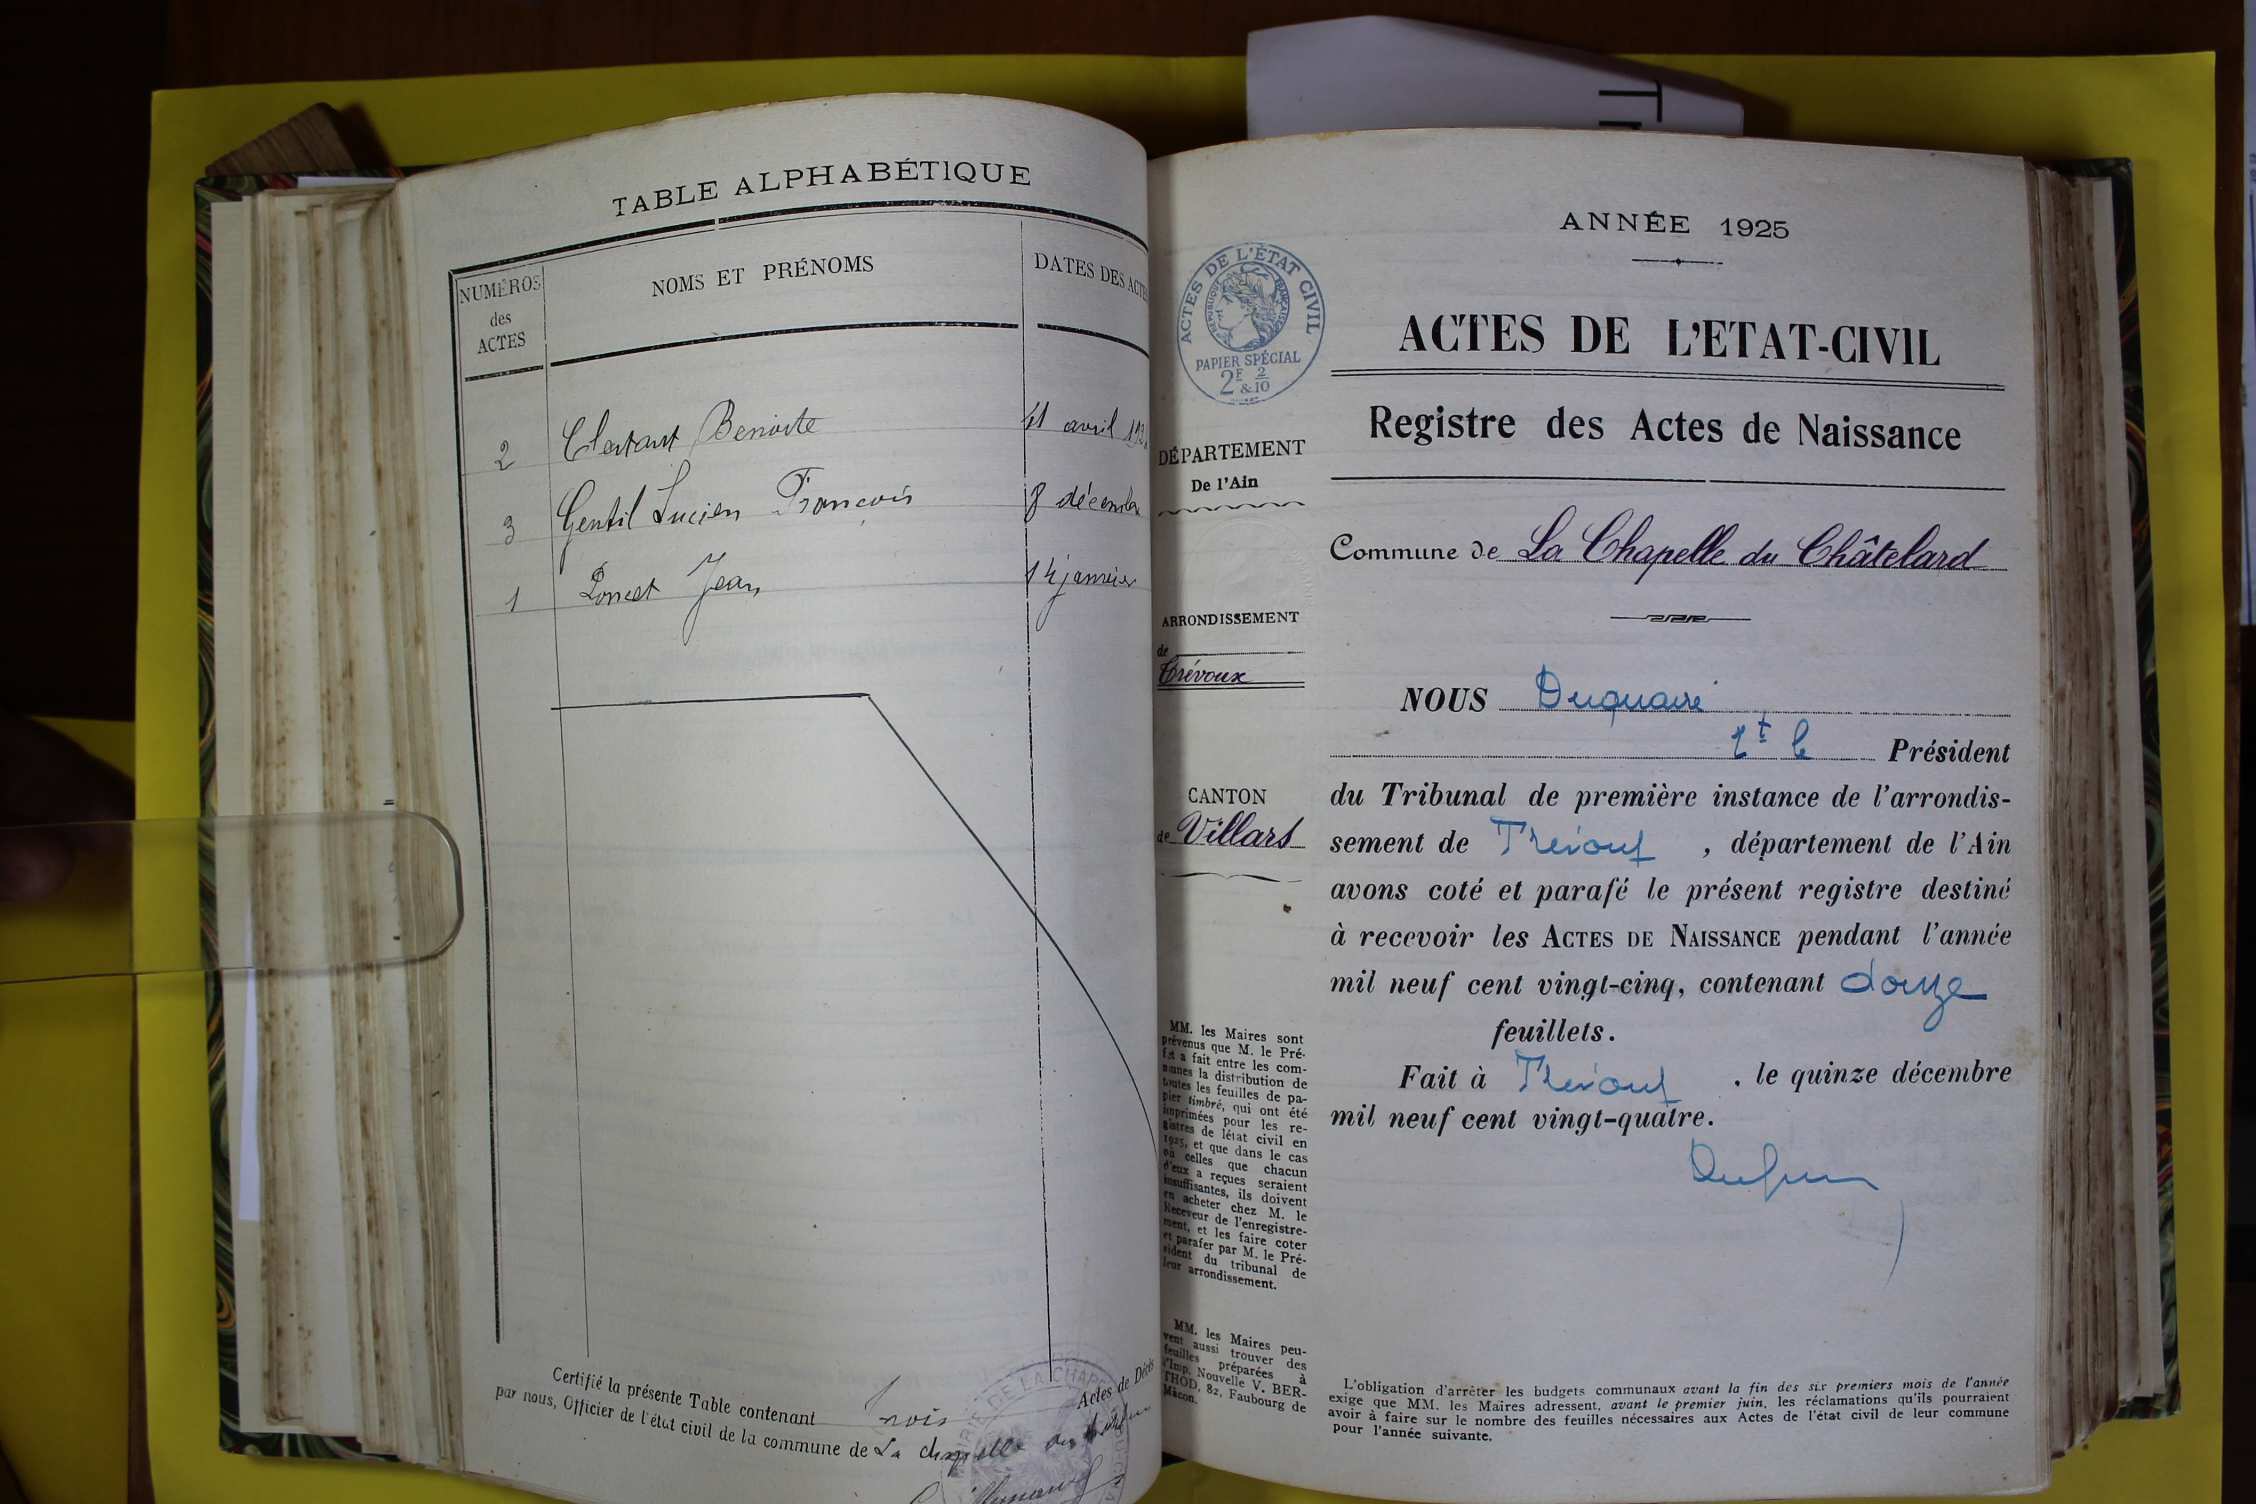 TABLE ALPHABÉTIQUE
NUMÉROS
des
ACTES
NOMS ET PRÉNOMS
DATES DES ACTES
2 Benoite avril
3 Gentil Lucien François 8 décembre
1 Poncet Jean 14 janvier
Certifié la présente Table contenant trois Actes de Décès
par nous, Officier de l'état civil de la commune de La chapelle du
MAIRIE DE LA CHAPE
ANNÉE 1925
ACTES DE L'ÉTAT CIVIL
RÉPUBLIQUE FRANÇAISE
PAPIER SPÉCIAL
2F & 2/10
ACTES DE L'ETAT-CIVIL
Registre des Actes de Naissance
DÉPARTEMENT
De l'Ain
Commune de La Chapelle du Châtelard
ARRONDISSEMENT
de
Trévoux
CANTON
de Villars
NOUS Duquaire
Président
du Tribunal de première instance de l'arrondis-
sement de Trévoux, département de l'Ain
avons coté et parafé le présent registre destiné
à recevoir les ACTES DE NAISSANCE pendant l'année
mil neuf cent vingt-cinq, contenant douze
feuillets.
Fait à Trévoux, le quinze décembre
mil neuf cent vingt-quatre.
MM. les Maires sont
prévenus que M. le Pré-
fet a fait entre les com-
munes la distribution de
toutes les feuilles de pa-
pier timbré, qui ont été
imprimées pour les re-
gistres de létat civil en
1925, et que dans le cas
où celles que chacun
d'eux a reçues seraient
insuffisantes, ils doivent
en acheter chez M. le
Receveur de l'enregistre-
ment, et les faire coter
et parafer par M. le Pré-
sident du tribunal de
leur arrondissement.
MM. les Maires peu-
vent aussi trouver des
feuilles préparées à
l'Imp. Nouvelle V. BER-
THOD, 82, Faubourg de
Mâcon.
L'obligation d'arrêter les budgets communaux avant la fin des six premiers mois de l'année
exige que MM. les Maires adressent, avant le premier juin, les réclamations qu'ils pourraient
avoir à faire sur le nombre des feuilles nécessaires aux Actes de l'état civil de leur commune
pour l'année suivante.